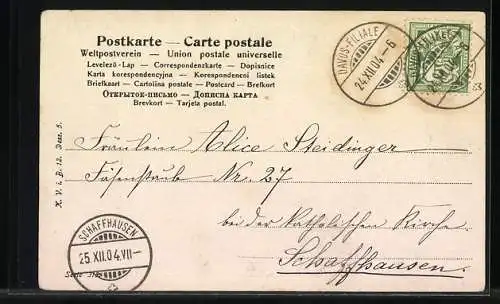 Postkarte — Carte postale
Weltpostverein — Union postale universelle
Levelező-Lap — Correspondenzkarte — Dopisnice
Karta korespondencyjna — Korespondenčni listek
Briefkaart — Cartolina postale — Postcard — Brefkort
Открытое-письмо — Дописна карта
Brevkort — Tarjeta postal.
DAVOS-FILIALE
24.XII.04 – 6
Fräulein Alice Steidinger
Fäsenstaub Nr. 27
bei der katholischen Kirche
Schaffhausen.
SCHAFFHAUSEN
25.XII.04.VII–
Serie